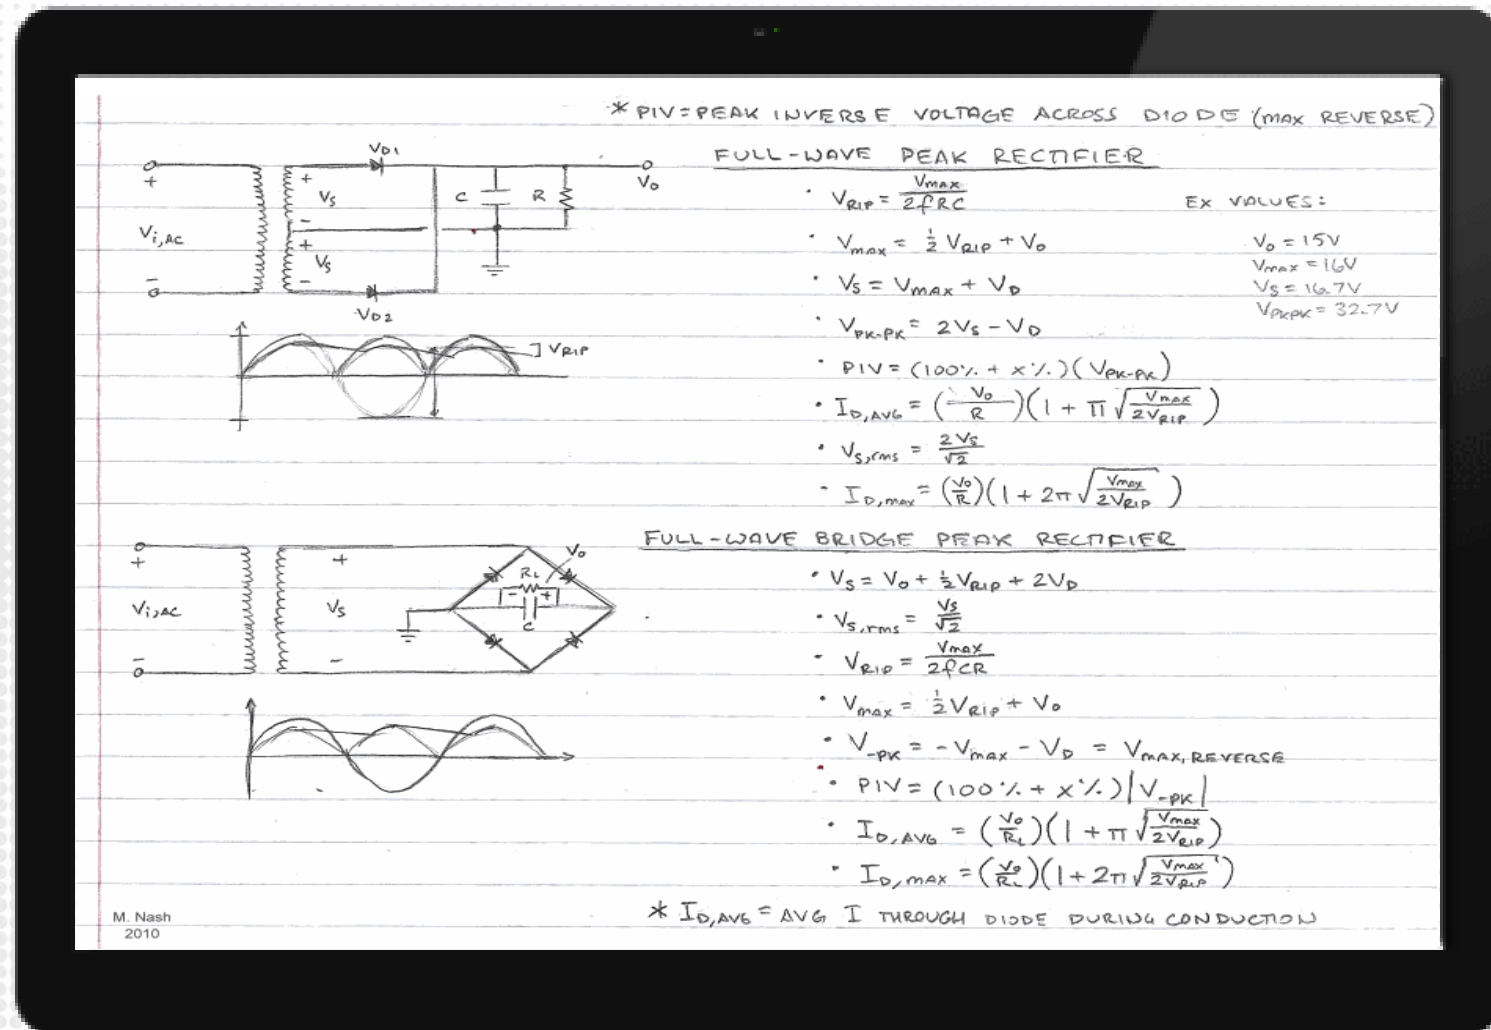 * PIV = PEAK INVERSE VOLTAGE ACROSS DIODE (MAX REVERSE)
FULL-WAVE PEAK RECTIFIER
V_D1
+
V_S
-
+
V_S
-
V_D2
V_i,AC
+
-
C
R
V_O
V_RIP
• V_RIP = V_MAX / 2fRC
• V_max = 1/2 V_RIP + V_O
• V_S = V_MAX + V_D
• V_PK-PK = 2V_S - V_D
• PIV = (100% + X%)(V_PK-PK)
• I_D,AVG = (V_O / R)(1 + π √(V_max / 2V_RIP))
• V_S,rms = 2V_S / √2
• I_D,max = (V_O / R)(1 + 2π √(V_max / 2V_RIP))
EX VALUES:
V_O = 15V
V_max = 16V
V_S = 16.7V
V_PKPK = 32.7V
FULL-WAVE BRIDGE PEAK RECTIFIER
+
V_i,AC
-
+
V_S
-
V_O
R_L
- +
C
• V_S = V_O + 1/2 V_RIP + 2V_D
• V_S,rms = V_S / √2
• V_RIP = V_max / 2fCR
• V_max = 1/2 V_RIP + V_O
• V_-PK = -V_max - V_D = V_MAX,REVERSE
• PIV = (100% + X%)|V_-PK|
• I_D,AVG = (V_O / R_L)(1 + π √(V_max / 2V_RIP))
• I_D,MAX = (V_O / R_L)(1 + 2π √(V_MAX / 2V_RIP))
* I_D,AVG = AVG I THROUGH DIODE DURING CONDUCTION
M. Nash
2010